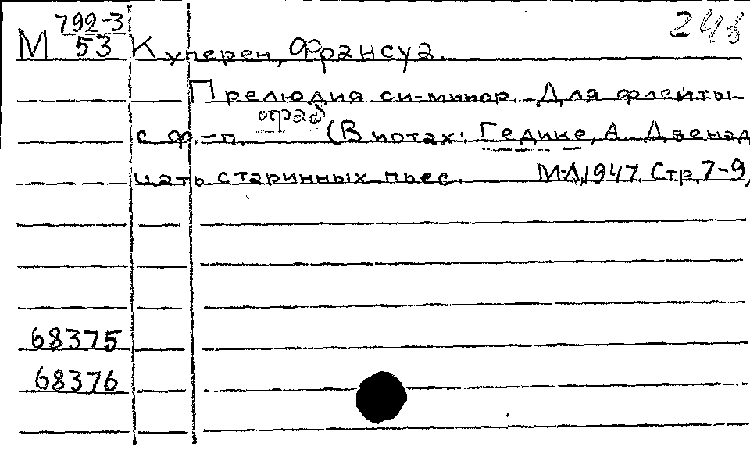 248
М 792-3
53 Куперен, Франсуа
Прелюдия си-минор. Для флейты
обраб
с ф.-п. (В нотах: Гедике, А. Двенад
цать старинных пьес. М-Л, 1947. Стр. 7-9,
68375
68376